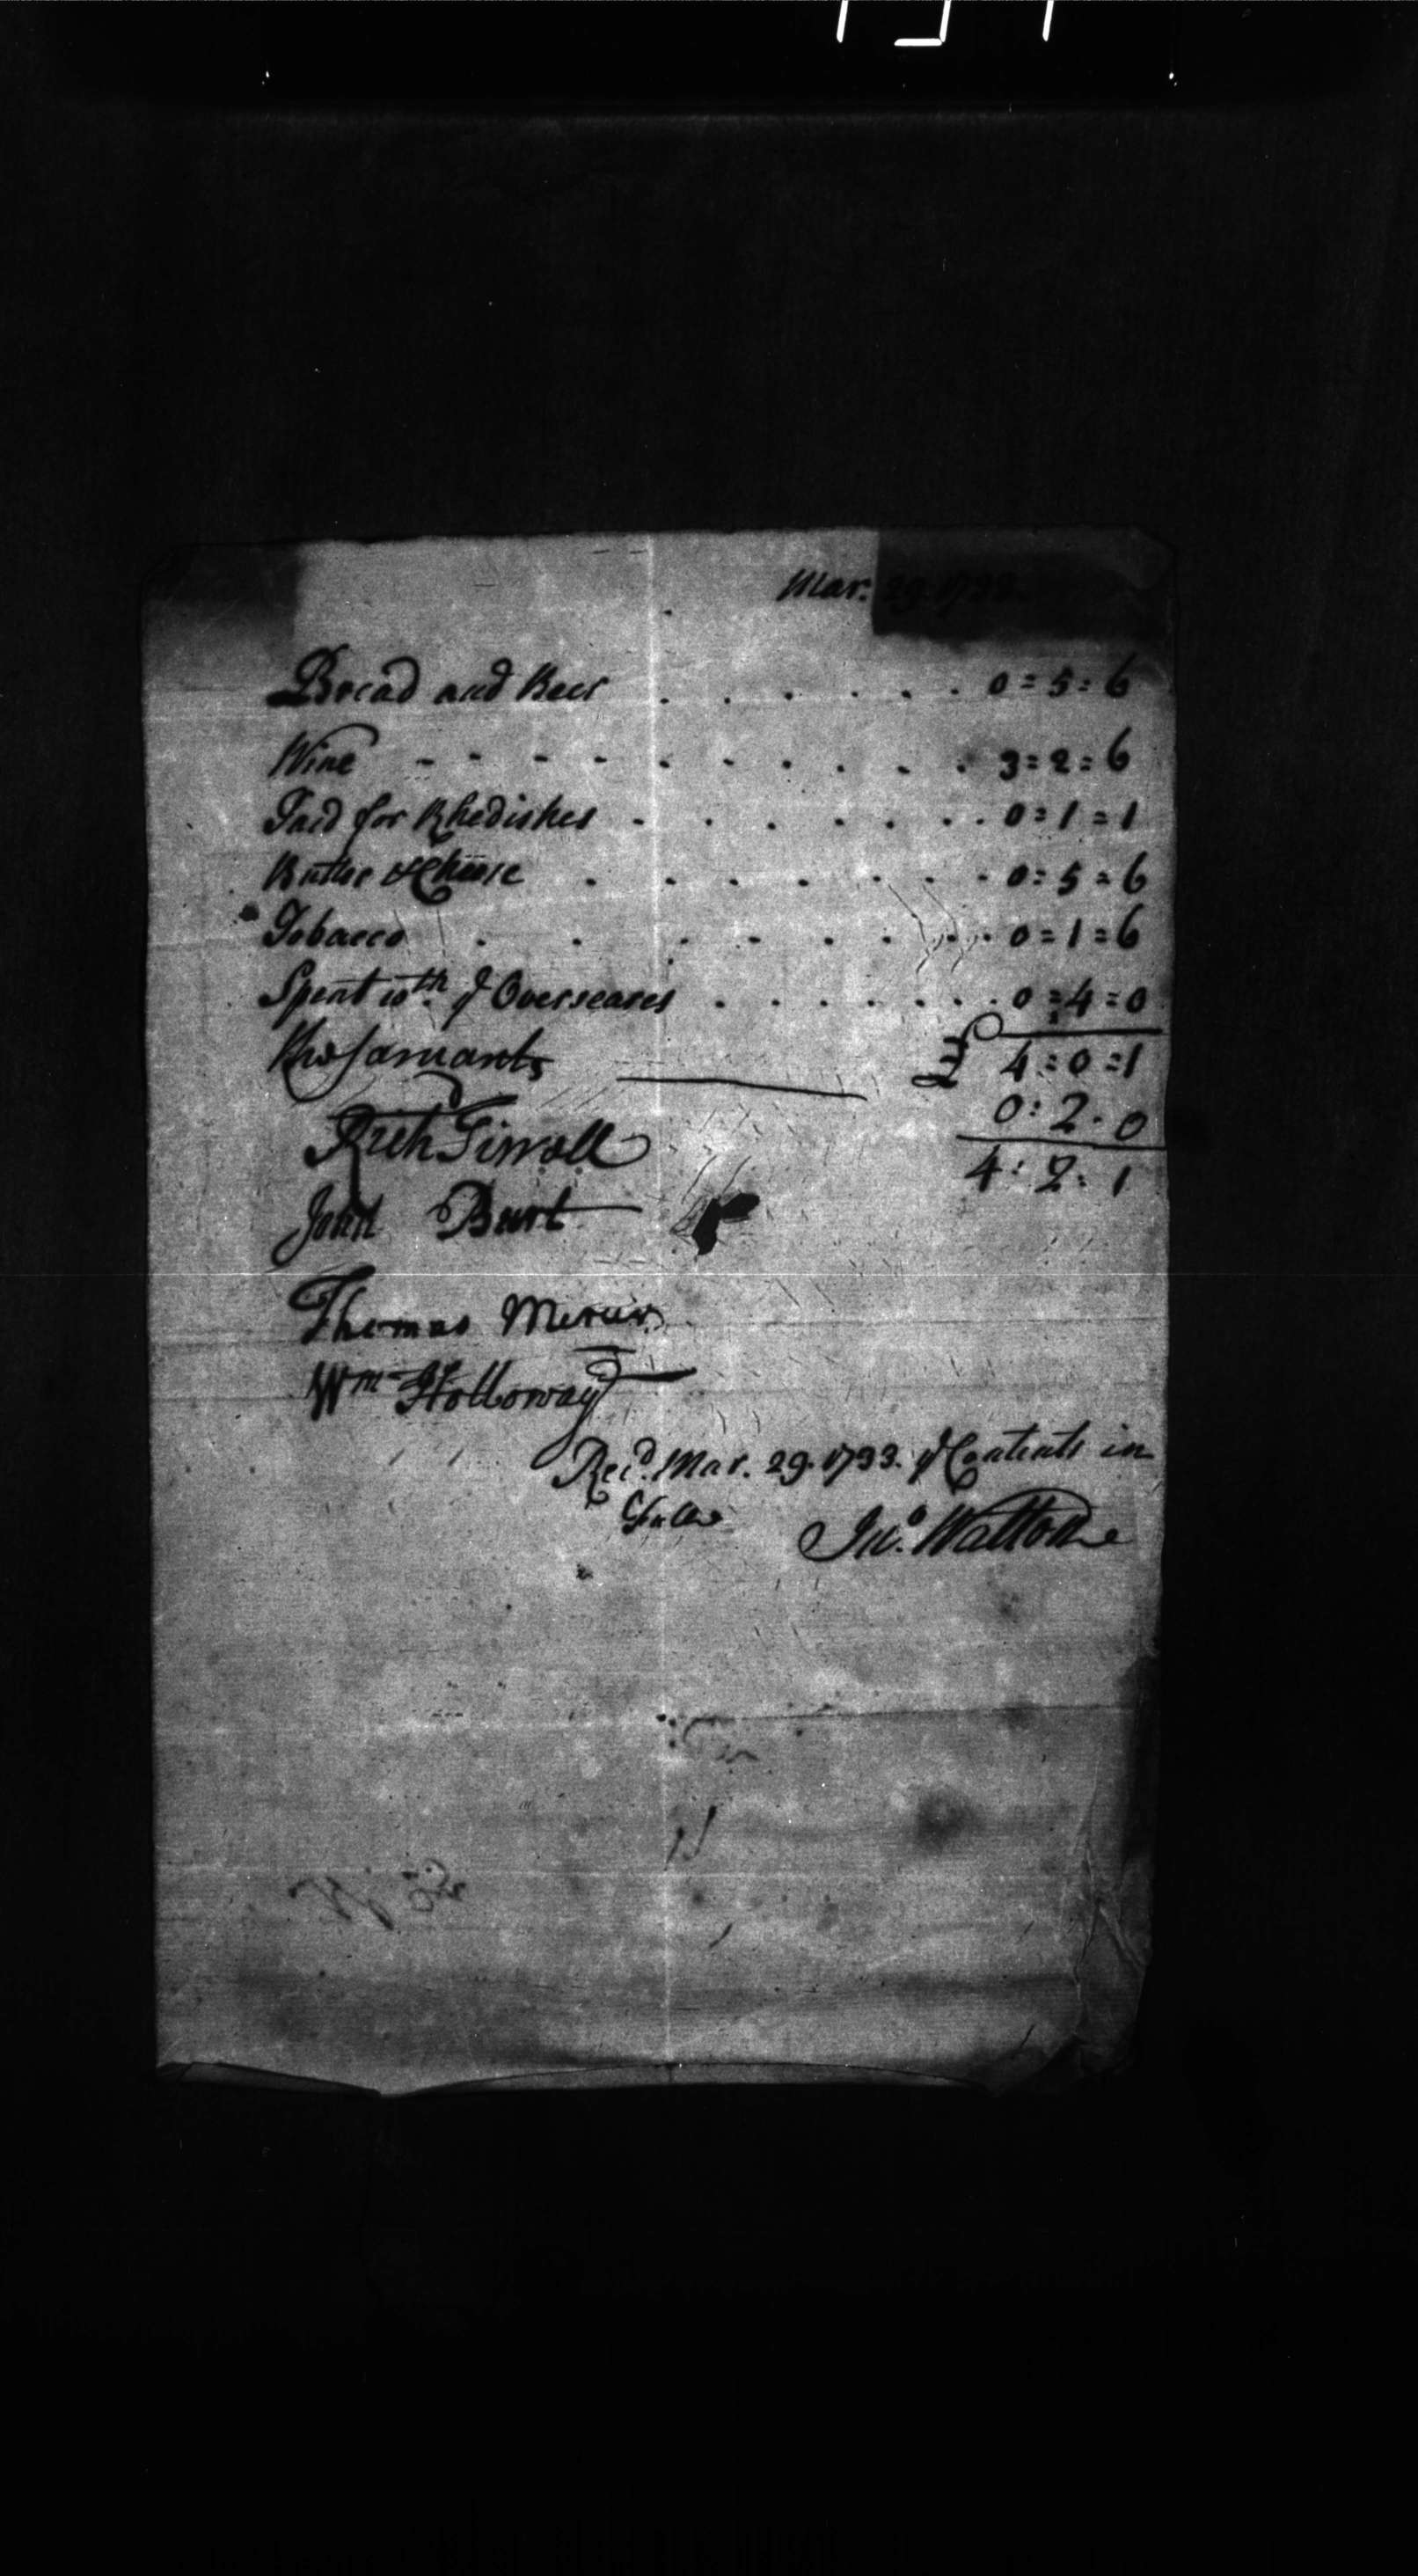 Mar. 29. 1733.
Bread and Beer . . . . . . 0=5=6
Wine - - - - - . . . . . 3=2=6
Paid for Rhedishes . . . . . . . 0=1=1
Butter & Cheese . . . . . . . 0=5=6
Tobacco . . . . . . . . 0=1=6
Spent wth. ye Overseares . . . . . . 0=4=0
£ 4=0=1
0:2.0
4:2:1
Rich
John Burt
Thomas Mercer
Wm Holloway
Recd. Mar. 29. 1733. ye Contents in
Jno. Walton